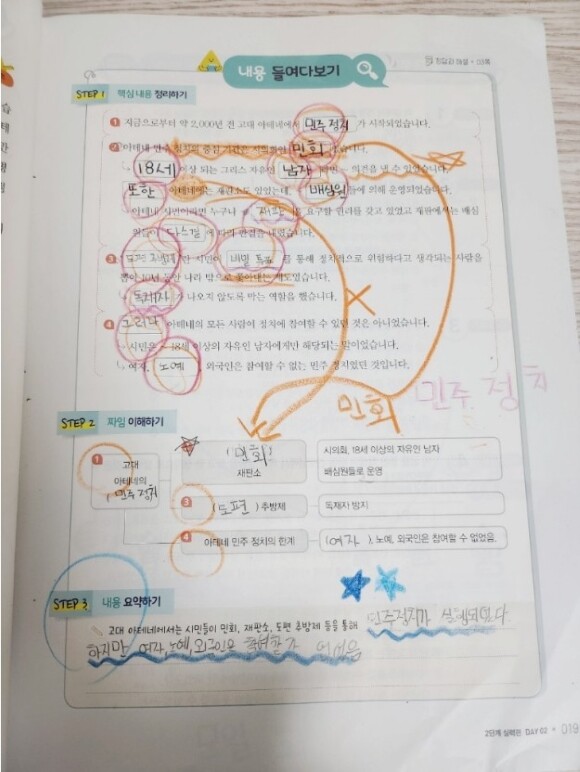 정답과 해설 • 03쪽
내용 들여다보기
STEP 1 핵심 내용 정리하기
1 지금으로부터 약 2,000년 전 고대 아테네에서 민주 정치 가 시작되었습니다.
2 아테네 민주 정치의 중심 기관은 시민들의 민회
18세 이상 되는 그리스 자유인 남자 의견을 낼 수 있었습니다.
또한 아테네에는 재판소도 있었는데, 배심원 들에 의해 운영되었습니다.
아테네 시민이라면 누구나 재판 을 요구할 권리를 갖고 있었고 재판에서는 배심
원들이 다수결 에 따라 판결을 내렸습니다.
3 도편 추방제 란 시민이 비밀 투표 를 통해 정치적으로 위험하다고 생각되는 사람을
뽑아 10년 동안 나라 밖으로 쫓아내는 제도였습니다.
독재자 가 나오지 않도록 막는 역할을 했습니다.
4 그러나 아테네의 모든 사람이 정치에 참여할 수 있던 것은 아니었습니다.
시민은 18세 이상의 자유인 남자에게만 해당되는 말이었습니다.
여자, 노예, 외국인은 참여할 수 없는 민주 정치였던 것입니다.
민회 민주 정치
STEP 2 짜임 이해하기
1 고대
아테네의
민주 정치
(민회)
재판소
시의회, 18세 이상의 자유인 남자
배심원들로 운영
3 (도편) 추방제
독재자 방지
4 아테네 민주 정치의 한계
(여자), 노예, 외국인은 참여할 수 없었음.
STEP 3 내용 요약하기
고대 아테네에서는 시민들이 민회, 재판소, 도편 추방제 등을 통해 민주정치가 실행되었다
하지만 여자,노예,외국인은 참여할 수 없었음
2단계 실력은 DAY 02 • 019